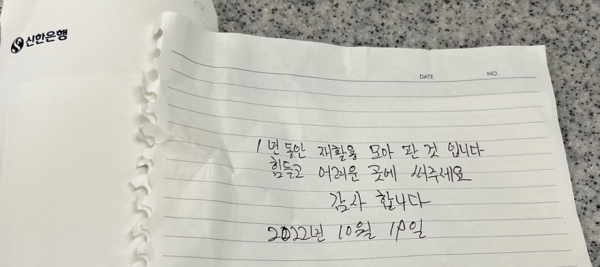 신한은행
DATE NO.
1년동안 재활용 모아 판 것 입니다
힘들고 어려운 곳에 써주세요
감사 합니다
2022년 10월 19일